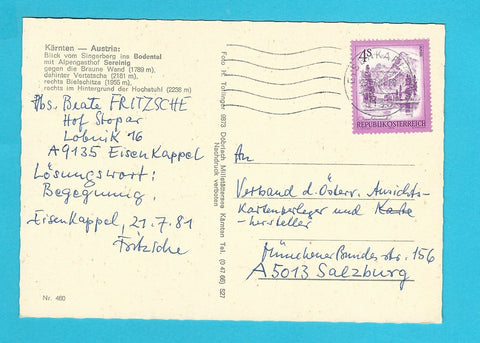 Kärnten — Austria:
Blick vom Singerberg ins Bodental
mit Alpengasthof Sereinig
gegen die Braune Wand (1789 m),
dahinter Vertatscha (2181 m),
rechts Bielschitza (1955 m),
rechts im Hintergrund der Hochstuhl (2238 m)
Abs. Beate FRITZSCHE
Hof Stopar
Lobnik 16
A 9135 Eisenkappel
Lösungswort:
Begegnung.
Eisenkappel, 21.7.81
Fritzsche
Nr. 460
Foto H. Tollinger 9873 Döbriach Millstättersee Kärnten Tel. (0 42 46) 527
Nachdruck verboten
4S
REPUBLIK ÖSTERREICH
An
Verband d. Österr. Ansichts-
Kartenverleger und Karte
-hersteller
Münchener Bundesstr. 156
A 5013 Salzburg